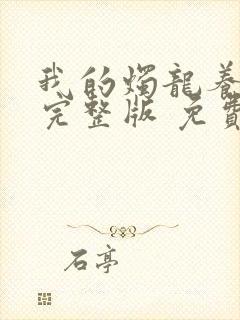 我的燭龍養
完整版 免費
石亭